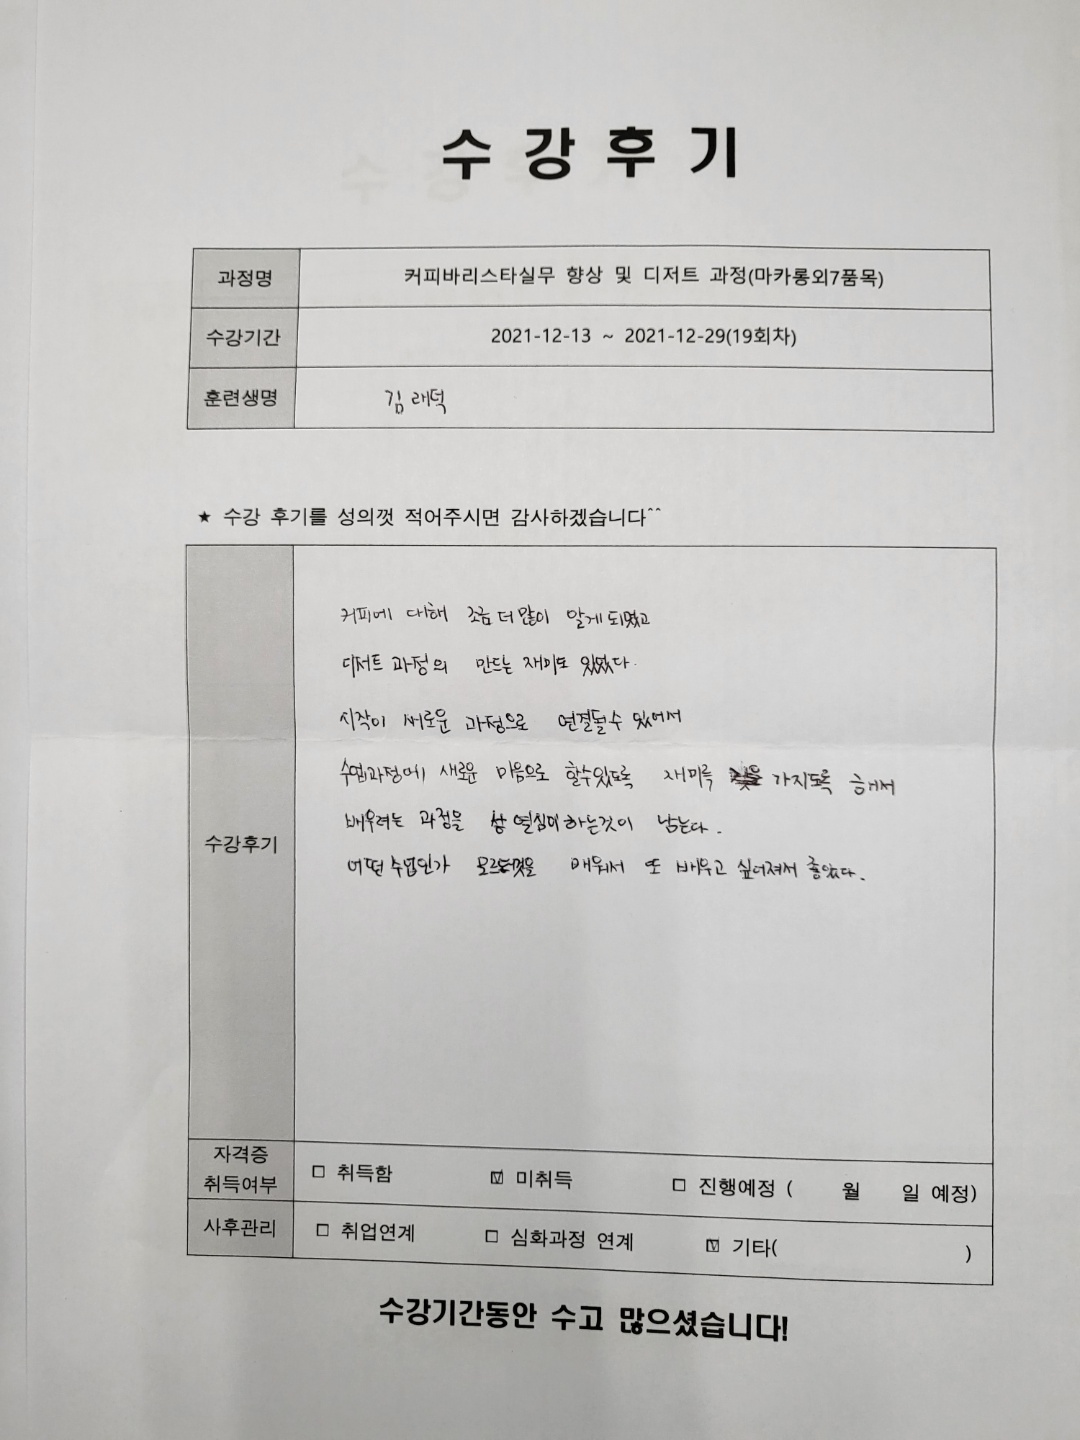 수강후기
과정명 커피바리스타실무 향상 및 디저트 과정(마카롱외7품목)
수강기간 2021-12-13 ~ 2021-12-29(19회차)
훈련생명 김래덕
★ 수강 후기를 성의껏 적어주시면 감사하겠습니다^^
커피에 대해 조금 더 많이 알게 되었고
디저트 과정의 만드는 재미도 있었다.
시작이 새로운 과정으로 연결될수 있어서
수업과정에 새로운 마음으로 할수있도록 재미를 가지도록 해서
배우려는 과정을 참 열심히 하는것이 남는다.
수강후기
어떤 수업인가 모르는것을 배워서 또 배우고 싶어져서 좋았다.
자격증 취득여부 □ 취득함 ☑ 미취득 □ 진행예정 ( 월 일 예정)
사후관리 □ 취업연계 □ 심화과정 연계 ☑ 기타( )
수강기간동안 수고 많으셨습니다!